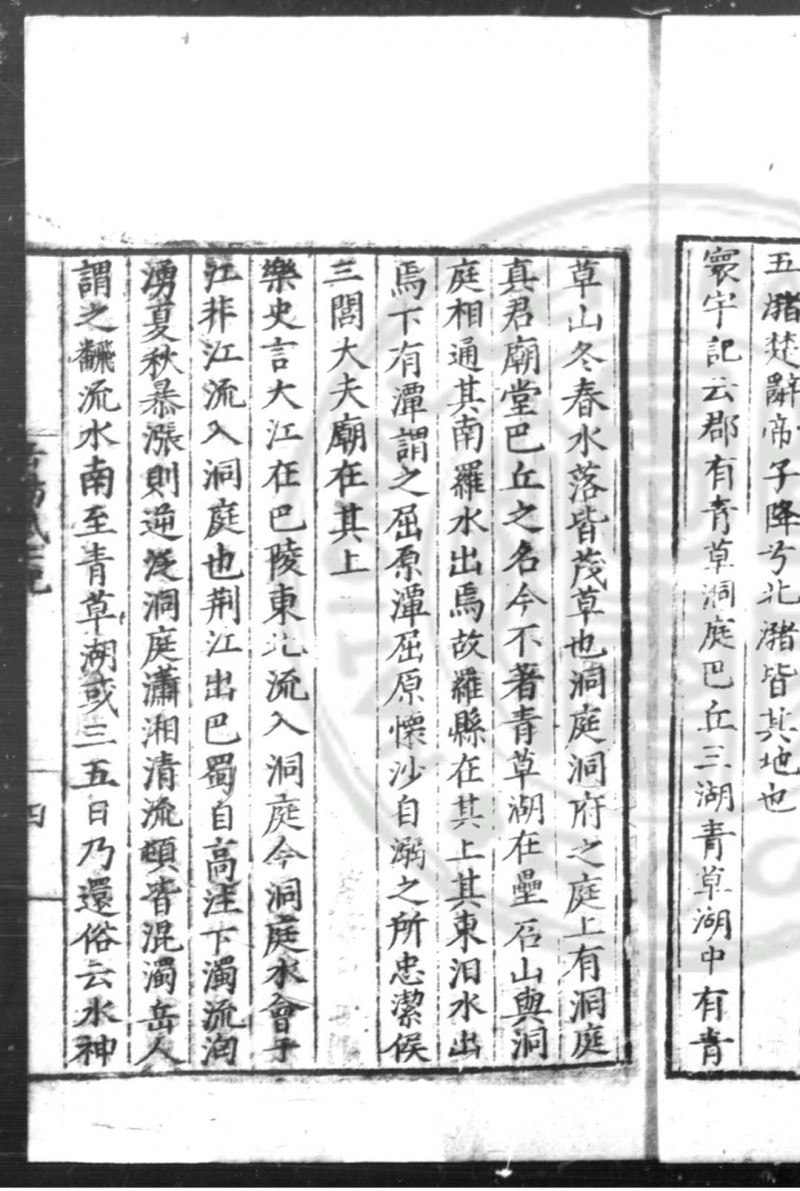 五瀦楚辭帝子降兮北瀦皆其地也
寰宇記云郡有青草洞庭巴丘三湖青草湖中有青
草山冬春水落皆茂草也洞庭洞府之庭上有洞庭
真君廟堂巴丘之名今不著青草湖在壘石山與洞
庭相通其南羅水出焉故羅縣在其上其東汨水出
焉下有潭謂之屈原潭屈原懷沙自溺之所忠潔侯
三閭大夫廟在其上
樂史言大江在巴陵東北流入洞庭今洞庭水會于
江非江流入洞庭也荆江出巴蜀自高注下濁流洶
湧夏秋暴漲則逆泛洞庭瀟湘清流頓皆混濁岳人
謂之翻流水南至青草湖或三五日乃還俗云水神
四